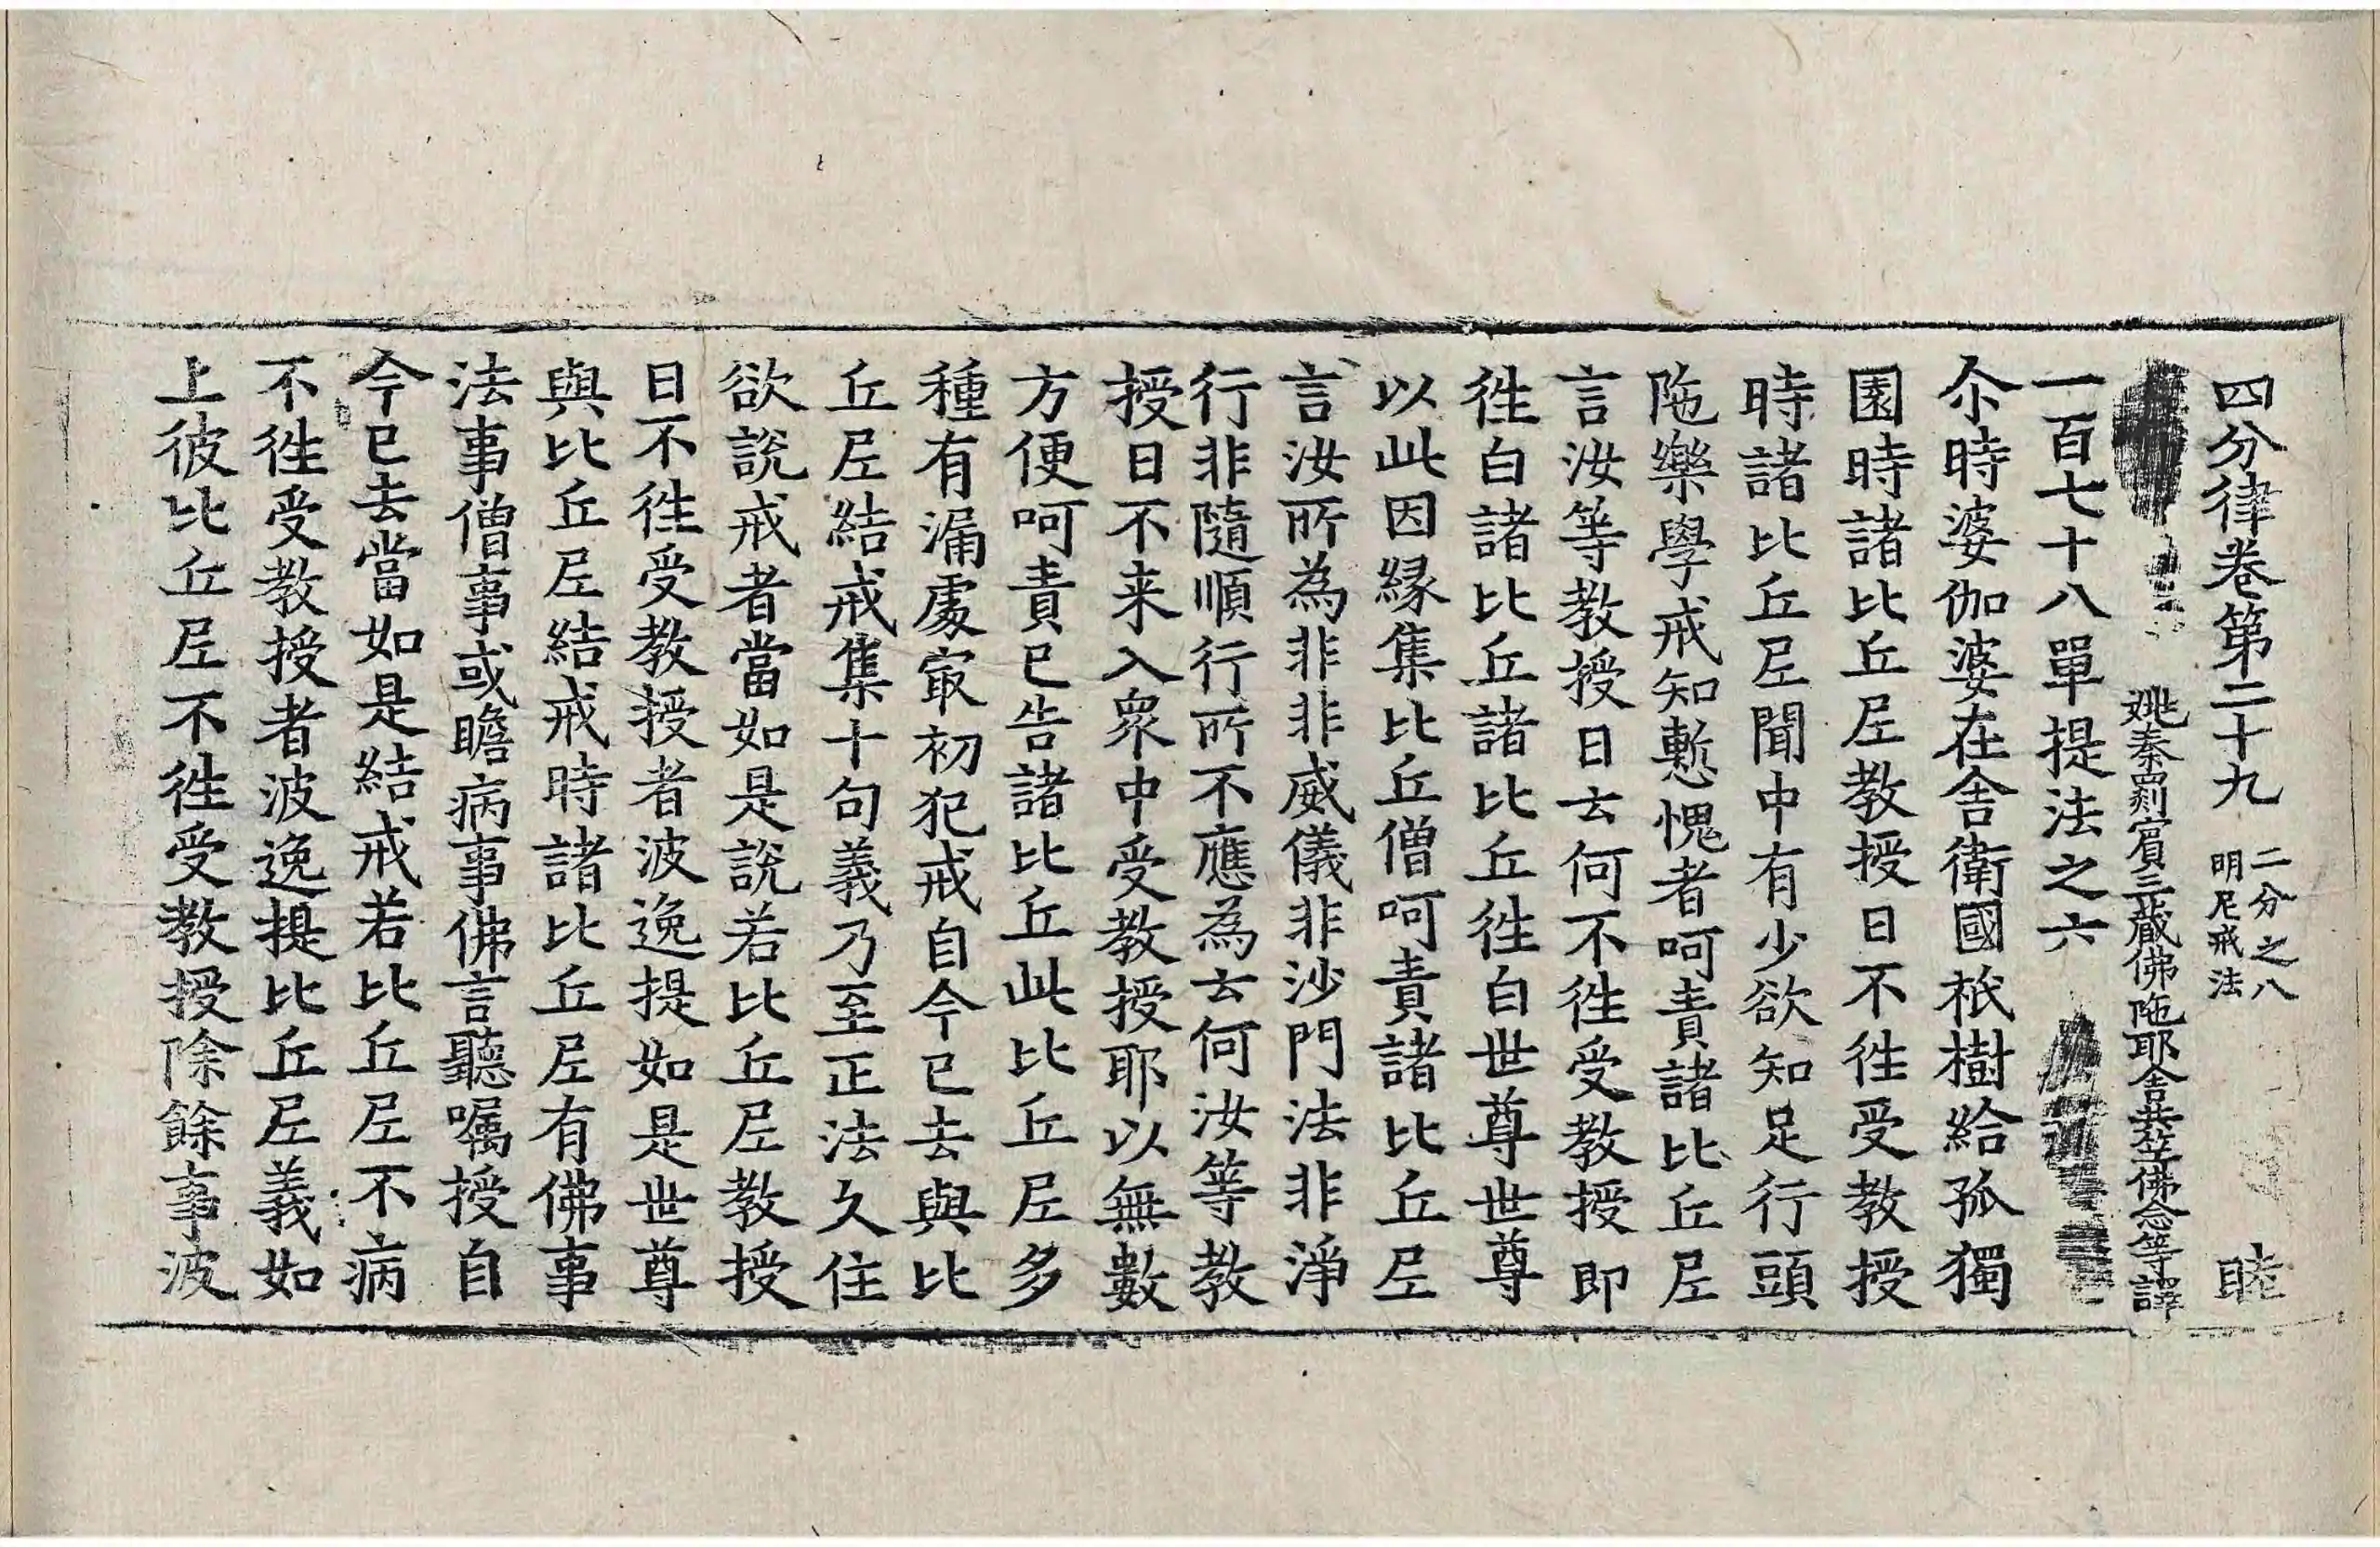 四分律卷第二十九 二分之八 明尼戒法 睦
姚秦罽賓三藏佛陁耶舍共竺佛念等譯
一百七十八單提法之六
尒時婆伽婆在舍衛國祇樹給孤獨
園時諸比丘尼教授日不徃受教授
時諸比丘尼聞中有少欲知足行頭
陁樂學戒知慙愧者呵責諸比丘尼
言汝等教授日云何不徃受教授即
徃白諸比丘諸比丘徃白世尊世尊
以此因緣集比丘僧呵責諸比丘尼
言汝所為非非威儀非沙門法非淨
行非隨順行所不應為云何汝等教
授日不来入眾中受教授耶以無數
方便呵責已告諸比丘此比丘尼多
種有漏處冣初犯戒自今已去與比
丘尼結戒集十句義乃至正法久住
欲說戒者當如是說若比丘尼教授
日不徃受教授者波逸提如是世尊
與比丘尼結戒時諸比丘尼有佛事
法事僧事或瞻病事佛言聽囑授自
今已去當如是結戒若比丘尼不病
不徃受教授者波逸提比丘尼義如
上彼比丘尼不徃受教授除餘事波